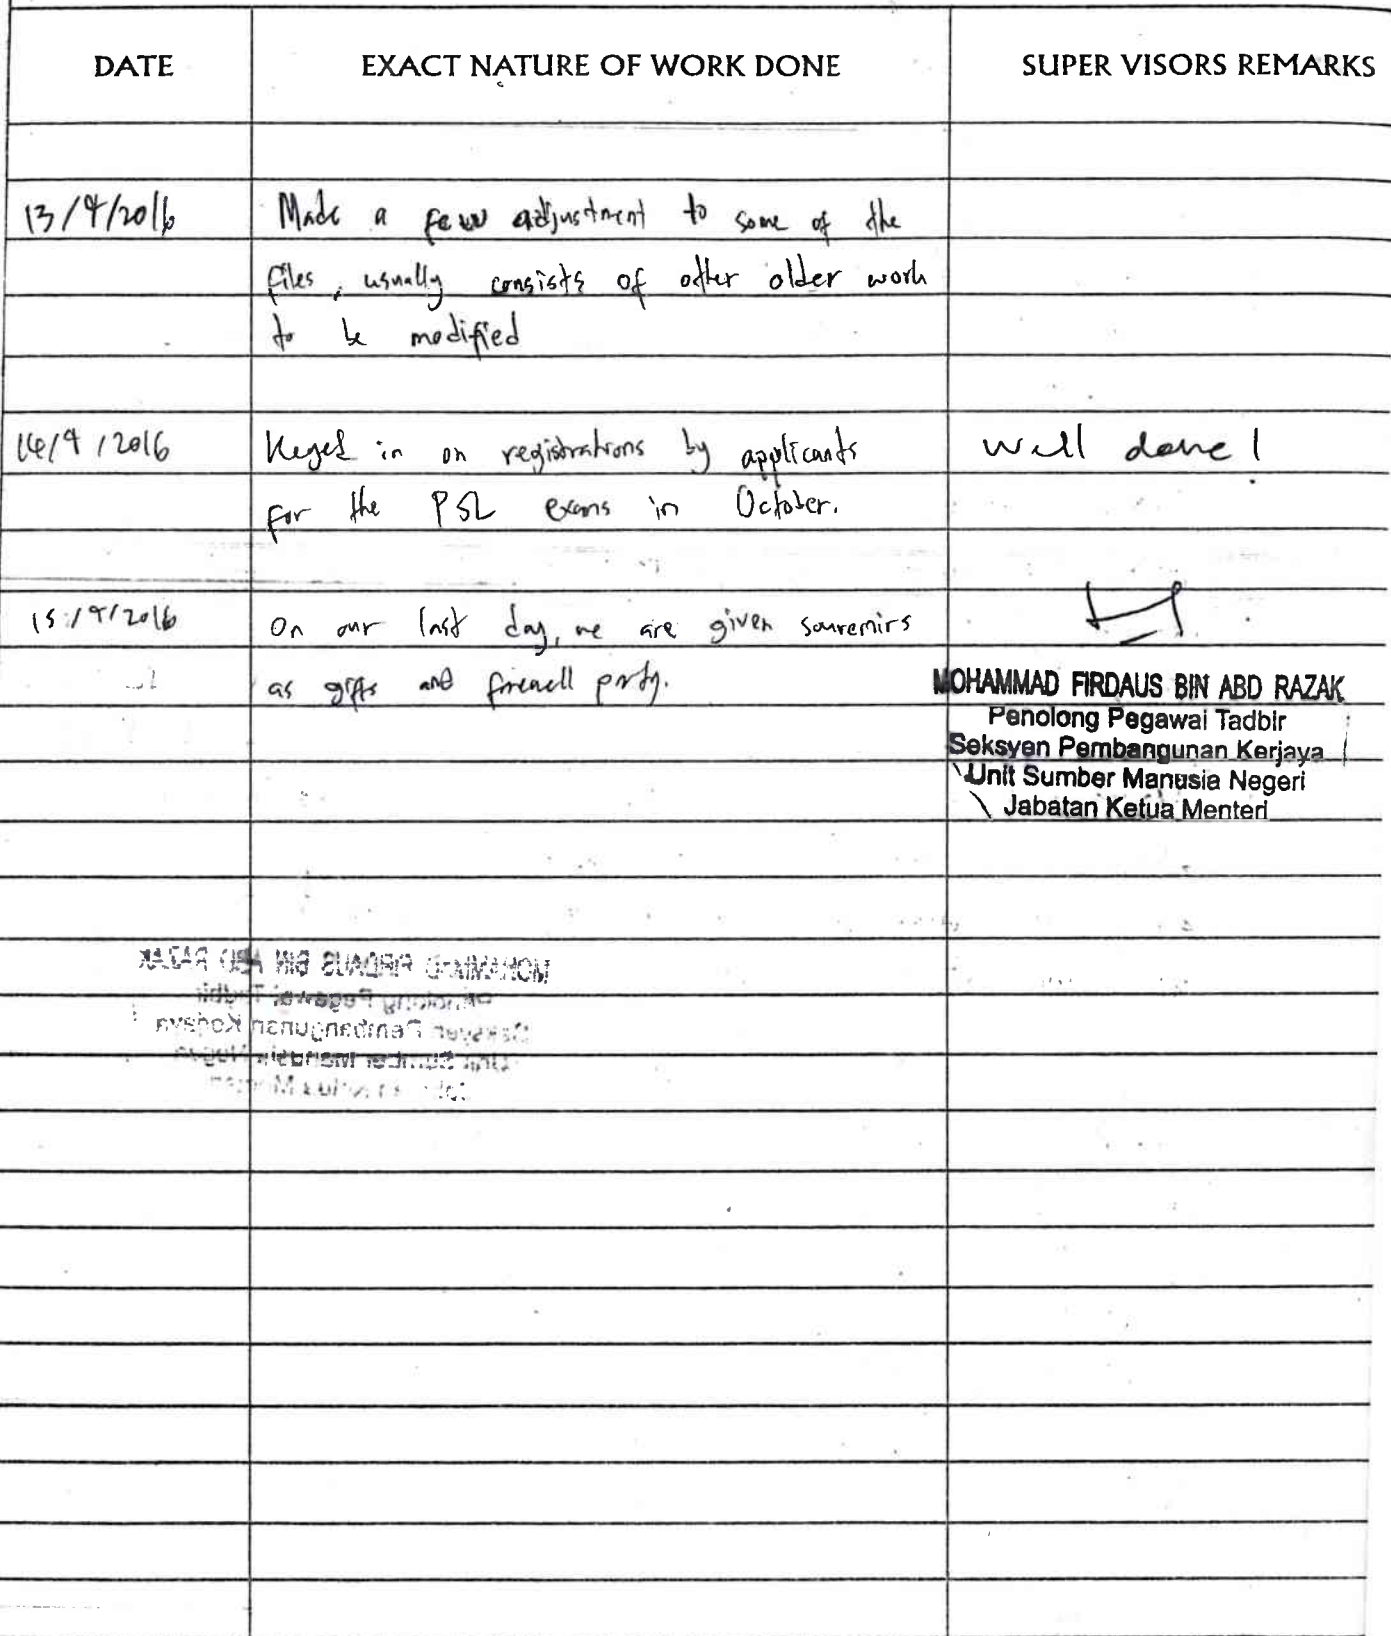 DATE EXACT NATURE OF WORK DONE SUPER VISORS REMARKS
13/9/2016 Made a few adjustment to some of the
files, usually consists of other older work
to be modified
14/9/2016 Keyed in on registrations by applicants Well done!
for the PSL exams in October.
15/9/2016 On our last day, we are given souvenirs
as gifts and farewell party. MOHAMMAD FIRDAUS BIN ABD RAZAK
Penolong Pegawai Tadbir
Seksyen Pembangunan Kerjaya
Unit Sumber Manusia Negeri
Jabatan Ketua Menteri